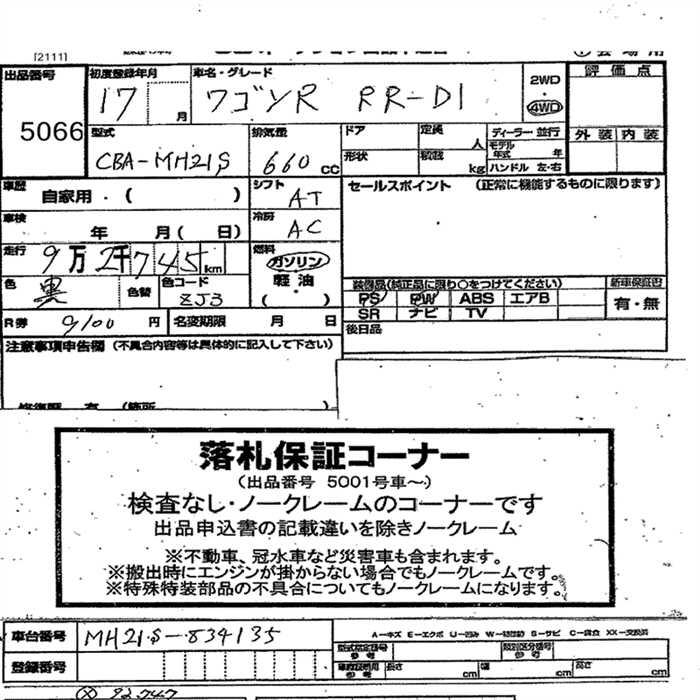 [2111]
出品番号 初度登録年月 車名・グレード 2WD 評価点
5066 17 月 ワゴンR RR-DI 4WD
型式 排気量 ドア 定員 人 ディーラー 並行 外装 内装
CBA-MH21S 660 cc 形状 積載 kg モデル年式 年 ハンドル 左・右
車歴 自家用・( ) シフト AT セールスポイント (正常に機能するものに限ります)
車検 年 月( 日) 冷房 AC
走行 9万2千745km 燃料 ガソリン 軽油・( )
色 黒 色替 色コード ZJ3 装備品(純正品に限り○をつけてください) 新車保証書
PS PW ABS エアB 有・無
SR ナビ TV
R券 9100 円 名変期限 月 日 後日品
注意事項申告欄 (不具合内容等は具体的に記入して下さい)
落札保証コーナー
(出品番号 5001号車~)
検査なし・ノークレームのコーナーです
出品申込書の記載違いを除きノークレーム
※不動車、冠水車など災害車も含まれます。
※搬出時にエンジンが掛からない場合でもノークレームです。
※特殊特装部品の不具合についてもノークレームになります。
車台番号 MH21S-834135 A-キズ E-エクボ U-凹み W-補修跡 S-サビ C-腐食 XX-交換済
登録番号 型式指定番号 参考 類別区分番号 参考
参考 長さ cm 幅 cm 高さ cm